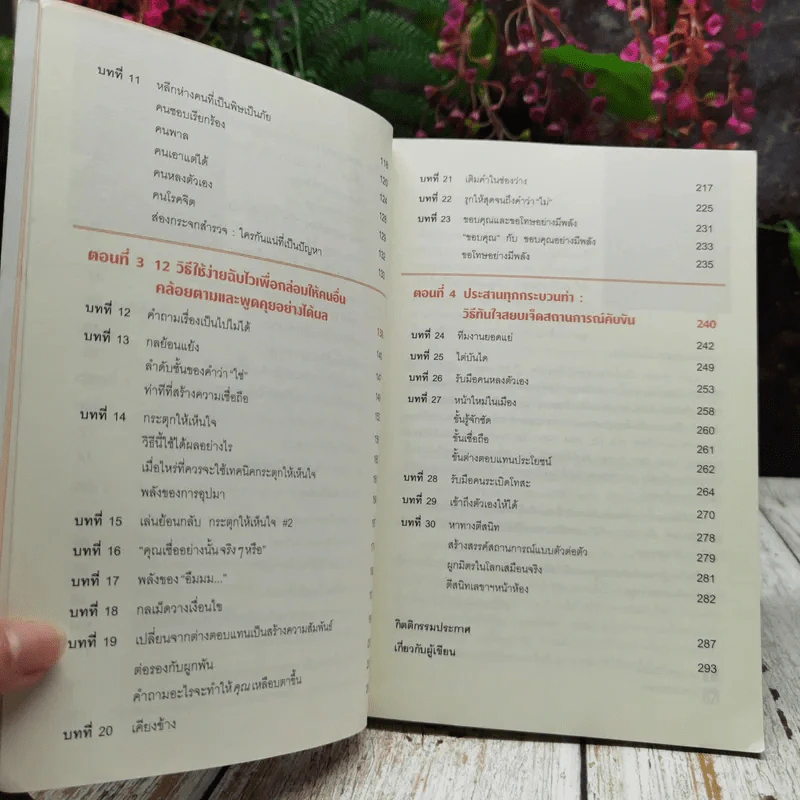 บทที่ 11 หลีกห่างคนที่เป็นพิษเป็นภัย
คนชอบเรียกร้อง 118
คนพาล 120
คนเอาแต่ได้ 124
คนหลงตัวเอง 126
คนโรคจิต 129
ส่องกระจกสำรวจ : ใครกันแน่ที่เป็นปัญหา 132
ตอนที่ 3 12 วิธีใช้ง่ายฉับไวเพื่อกล่อมให้คนอื่น
คล้อยตามและพูดคุยอย่างได้ผล
บทที่ 12 คำถามเรื่องเป็นไปไม่ได้
บทที่ 13 กลย้อนแย้ง
ลำดับชั้นของคำว่า "ใช่"
ท่าทีที่สร้างความเชื่อถือ
บทที่ 14 กระตุกให้เห็นใจ
วิธีนี้ใช้ได้ผลอย่างไร
เมื่อไหร่ที่ควรจะใช้เทคนิคกระตุกให้เห็นใจ
พลังของการอุปมา
บทที่ 15 เล่นย้อนกลับ กระตุกให้เห็นใจ #2
บทที่ 16 "คุณเชื่ออย่างนั้นจริงๆ หรือ"
บทที่ 17 พลังของ "อืมมม..."
บทที่ 18 กลเม็ดวางเงื่อนไข
บทที่ 19 เปลี่ยนจากต่างตอบแทนเป็นสร้างความสัมพันธ์
ต่อรองกับผูกพัน
คำถามอะไรจะทำให้คุณเหลือบตาขึ้น
บทที่ 20 เคียงข้าง
บทที่ 21 เติมคำในช่องว่าง 217
บทที่ 22 รุกให้สุดจนถึงคำว่า "ไม่" 225
บทที่ 23 ขอบคุณและขอโทษอย่างมีพลัง 231
"ขอบคุณ" กับ ขอบคุณอย่างมีพลัง 233
ขอโทษอย่างมีพลัง 235
ตอนที่ 4 ประสานทุกกระบวนท่า :
วิธีทันใจสยบเจ็ดสถานการณ์คับขัน 240
บทที่ 24 ทีมงานยอดแย่ 242
บทที่ 25 ไต่บันได 249
บทที่ 26 รับมือคนหลงตัวเอง 253
บทที่ 27 หน้าใหม่ในเมือง 258
ขั้นรู้จักซัด 260
ขั้นเชื่อถือ 261
ขั้นต่างตอบแทนประโยชน์ 262
บทที่ 28 รับมือคนระเบิดโทสะ 264
บทที่ 29 เข้าถึงตัวเองให้ได้ 270
บทที่ 30 หาทางตีสนิท 278
สร้างสรรค์สถานการณ์แบบตัวต่อตัว 279
ผูกมิตรในโลกเสมือนจริง 281
ตีสนิทเลขาฯหน้าห้อง 282
กิตติกรรมประกาศ 287
เกี่ยวกับผู้เขียน 293